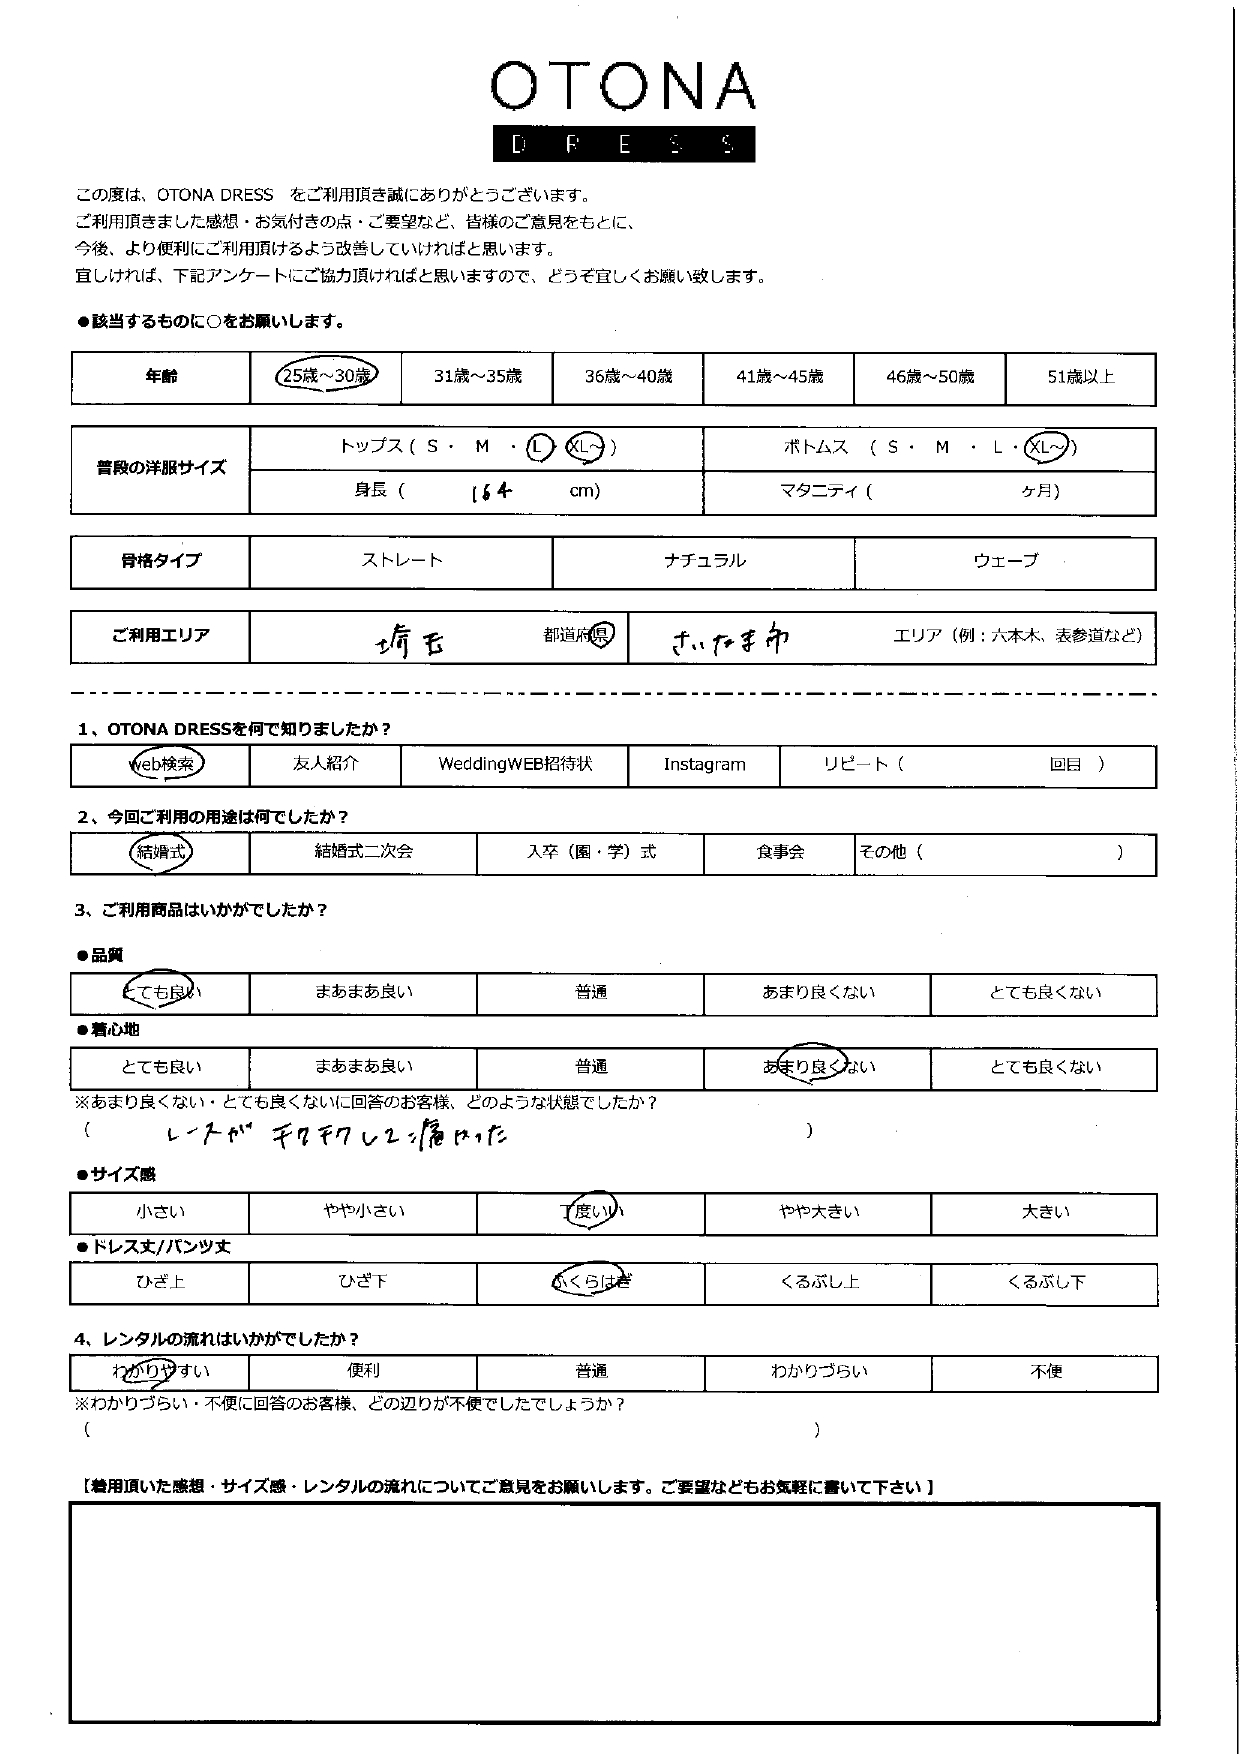 OTONA
DRESS
この度は、OTONA DRESS　をご利用頂き誠にありがとうございます。
ご利用頂きました感想・お気付きの点・ご要望など、皆様のご意見をもとに、
今後、より便利にご利用頂けるよう改善していければと思います。
宜しければ、下記アンケートにご協力頂ければと思いますので、どうぞ宜しくお願い致します。
●該当するものに○をお願いします。
年齢 25歳～30歳 31歳～35歳 36歳～40歳 41歳～45歳 46歳～50歳 51歳以上
普段の洋服サイズ トップス ( S ・ M ・ L ・ XL～ ) ボトムス ( S ・ M ・ L ・ XL～ )
身長 ( 164 cm) マタニティ ( ヶ月)
骨格タイプ ストレート ナチュラル ウェーブ
ご利用エリア 埼玉 都道府県 さいたま市 エリア（例：六本木、表参道など）
1、OTONA DRESSを何で知りましたか？
web検索 友人紹介 WeddingWEB招待状 Instagram リピート（ 回目 ）
2、今回ご利用の用途は何でしたか？
結婚式 結婚式二次会 入卒（園・学）式 食事会 その他（ ）
3、ご利用商品はいかがでしたか？
●品質
とても良い まあまあ良い 普通 あまり良くない とても良くない
●着心地
とても良い まあまあ良い 普通 あまり良くない とても良くない
※あまり良くない・とても良くないに回答のお客様、どのような状態でしたか？
（ レースが チクチクして痛かった ）
●サイズ感
小さい やや小さい 丁度いい やや大きい 大きい
●ドレス丈/パンツ丈
ひざ上 ひざ下 ふくらはぎ くるぶし上 くるぶし下
4、レンタルの流れはいかがでしたか？
わかりやすい 便利 普通 わかりづらい 不便
※わかりづらい・不便に回答のお客様、どの辺りが不便でしたでしょうか？
（ ）
【着用頂いた感想・サイズ感・レンタルの流れについてご意見をお願いします。ご要望などもお気軽に書いて下さい 】